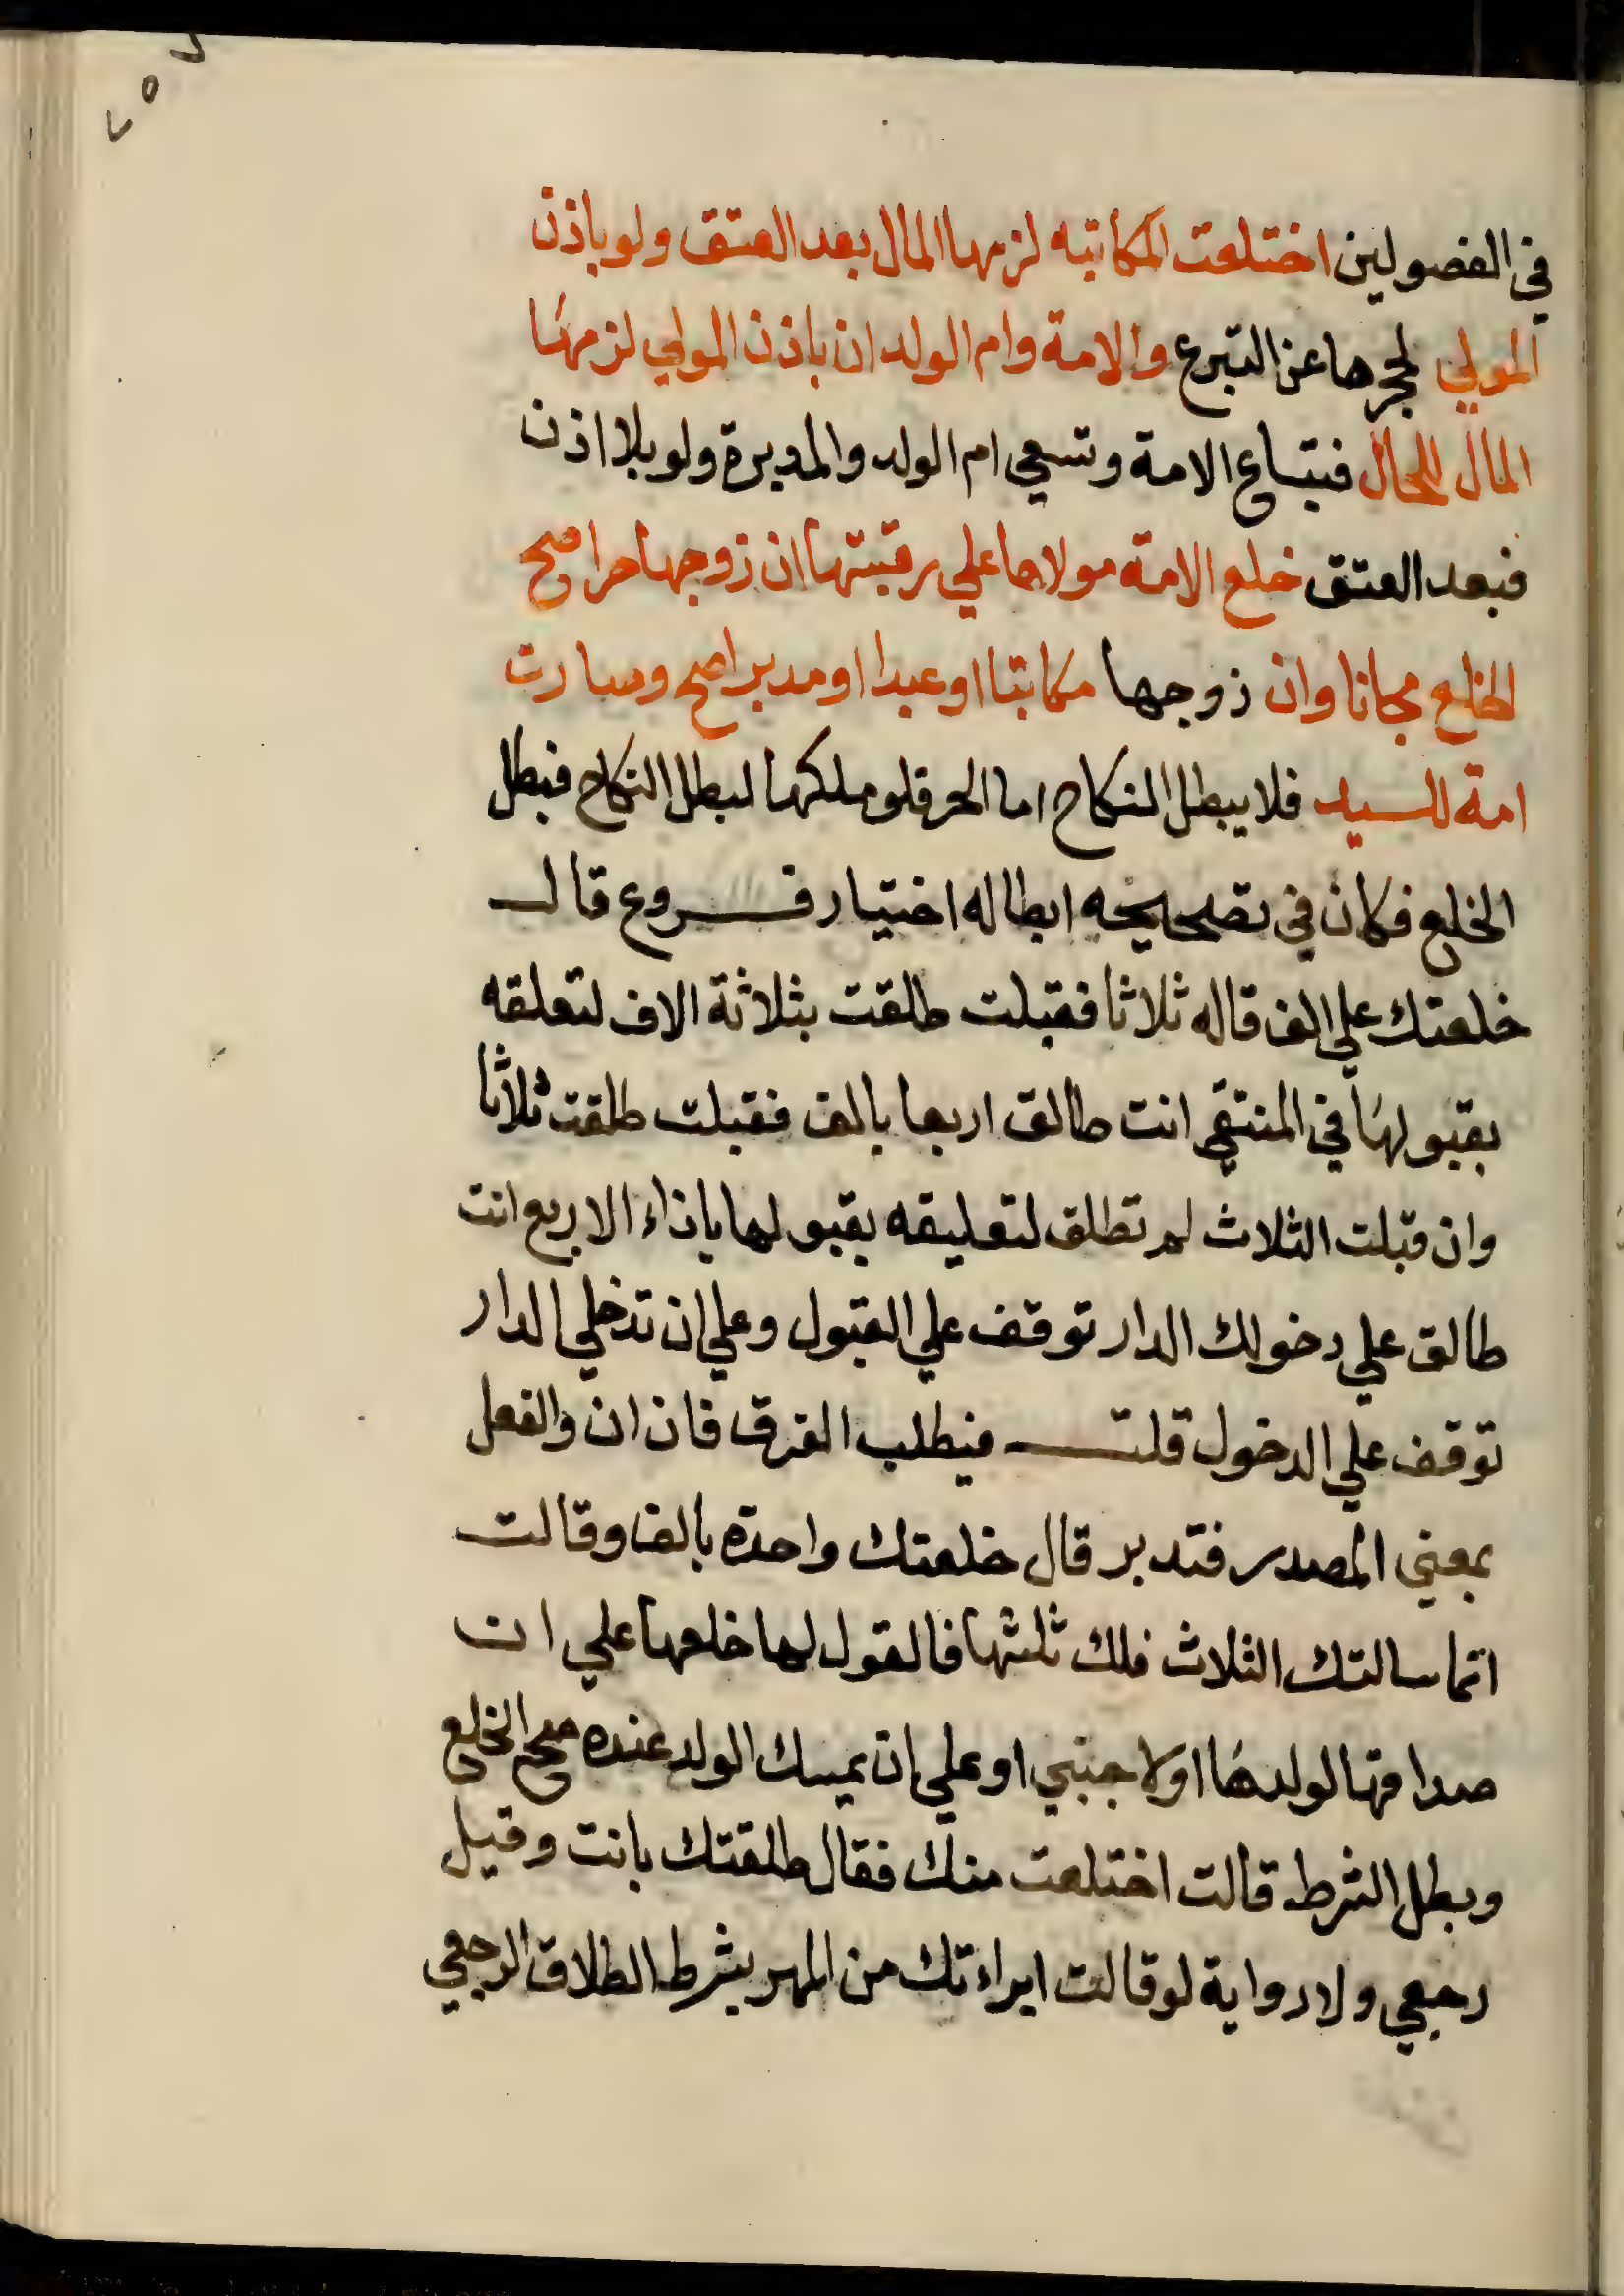 ٢٥٢
في الفضولين اختلعت المكاتبه لزمها المال بعد العتق ولو باذن
المولي لحجرها عن التبرع والامة وام الولد ان باذن المولي لزمها
المال للحال فتباع الامة وتسعي ام الولد والمدبرة ولو بلا اذن
فبعد العتق خلع الامة مولاها علي رقبتها ان زوجها حرا صح
الخلع مجانا وان زوجها مكاتبا او عبدا او مدبرا صح وصارت
امة للسيد فلا يبطل النكاح اما الحر فلو ملكها لبطل النكاح فبطل
الخلع فكان في تصحيحه ابطاله اختيار فروع قال
خلعتك علي الف قاله ثلاثا فقبلت طلقت بثلاثة الاف لتعلقه
بقبولها في المنتقي انت طالق اربعا بالف فقبلت طلقت ثلاثا
وان قبلت الثلاث لم تطلق لتعليقه بقبولها باذاء الاربع انت
طالق علي دخولك الدار توقف علي القبول وعلي ان تدخلي الدار
توقف علي الدخول قلت فيطلب الفرق فان ان والفعل
بمعني المصدر فتدبر قال خلعتك واحدة بالف وقالت
انما سالتك الثلاث فلك ثلثها فالقول لها خلعها علي ان
صداقها لولدها او لاجنبي او علي ان يمسك الولد عنده صح الخلع
وبطل الشرط قالت اختلعت منك فقال طلقتك بانت وقيل
رجعي ولا رواية لو قالت ابراءتك من المهر بشرط الطلاق الرجعي